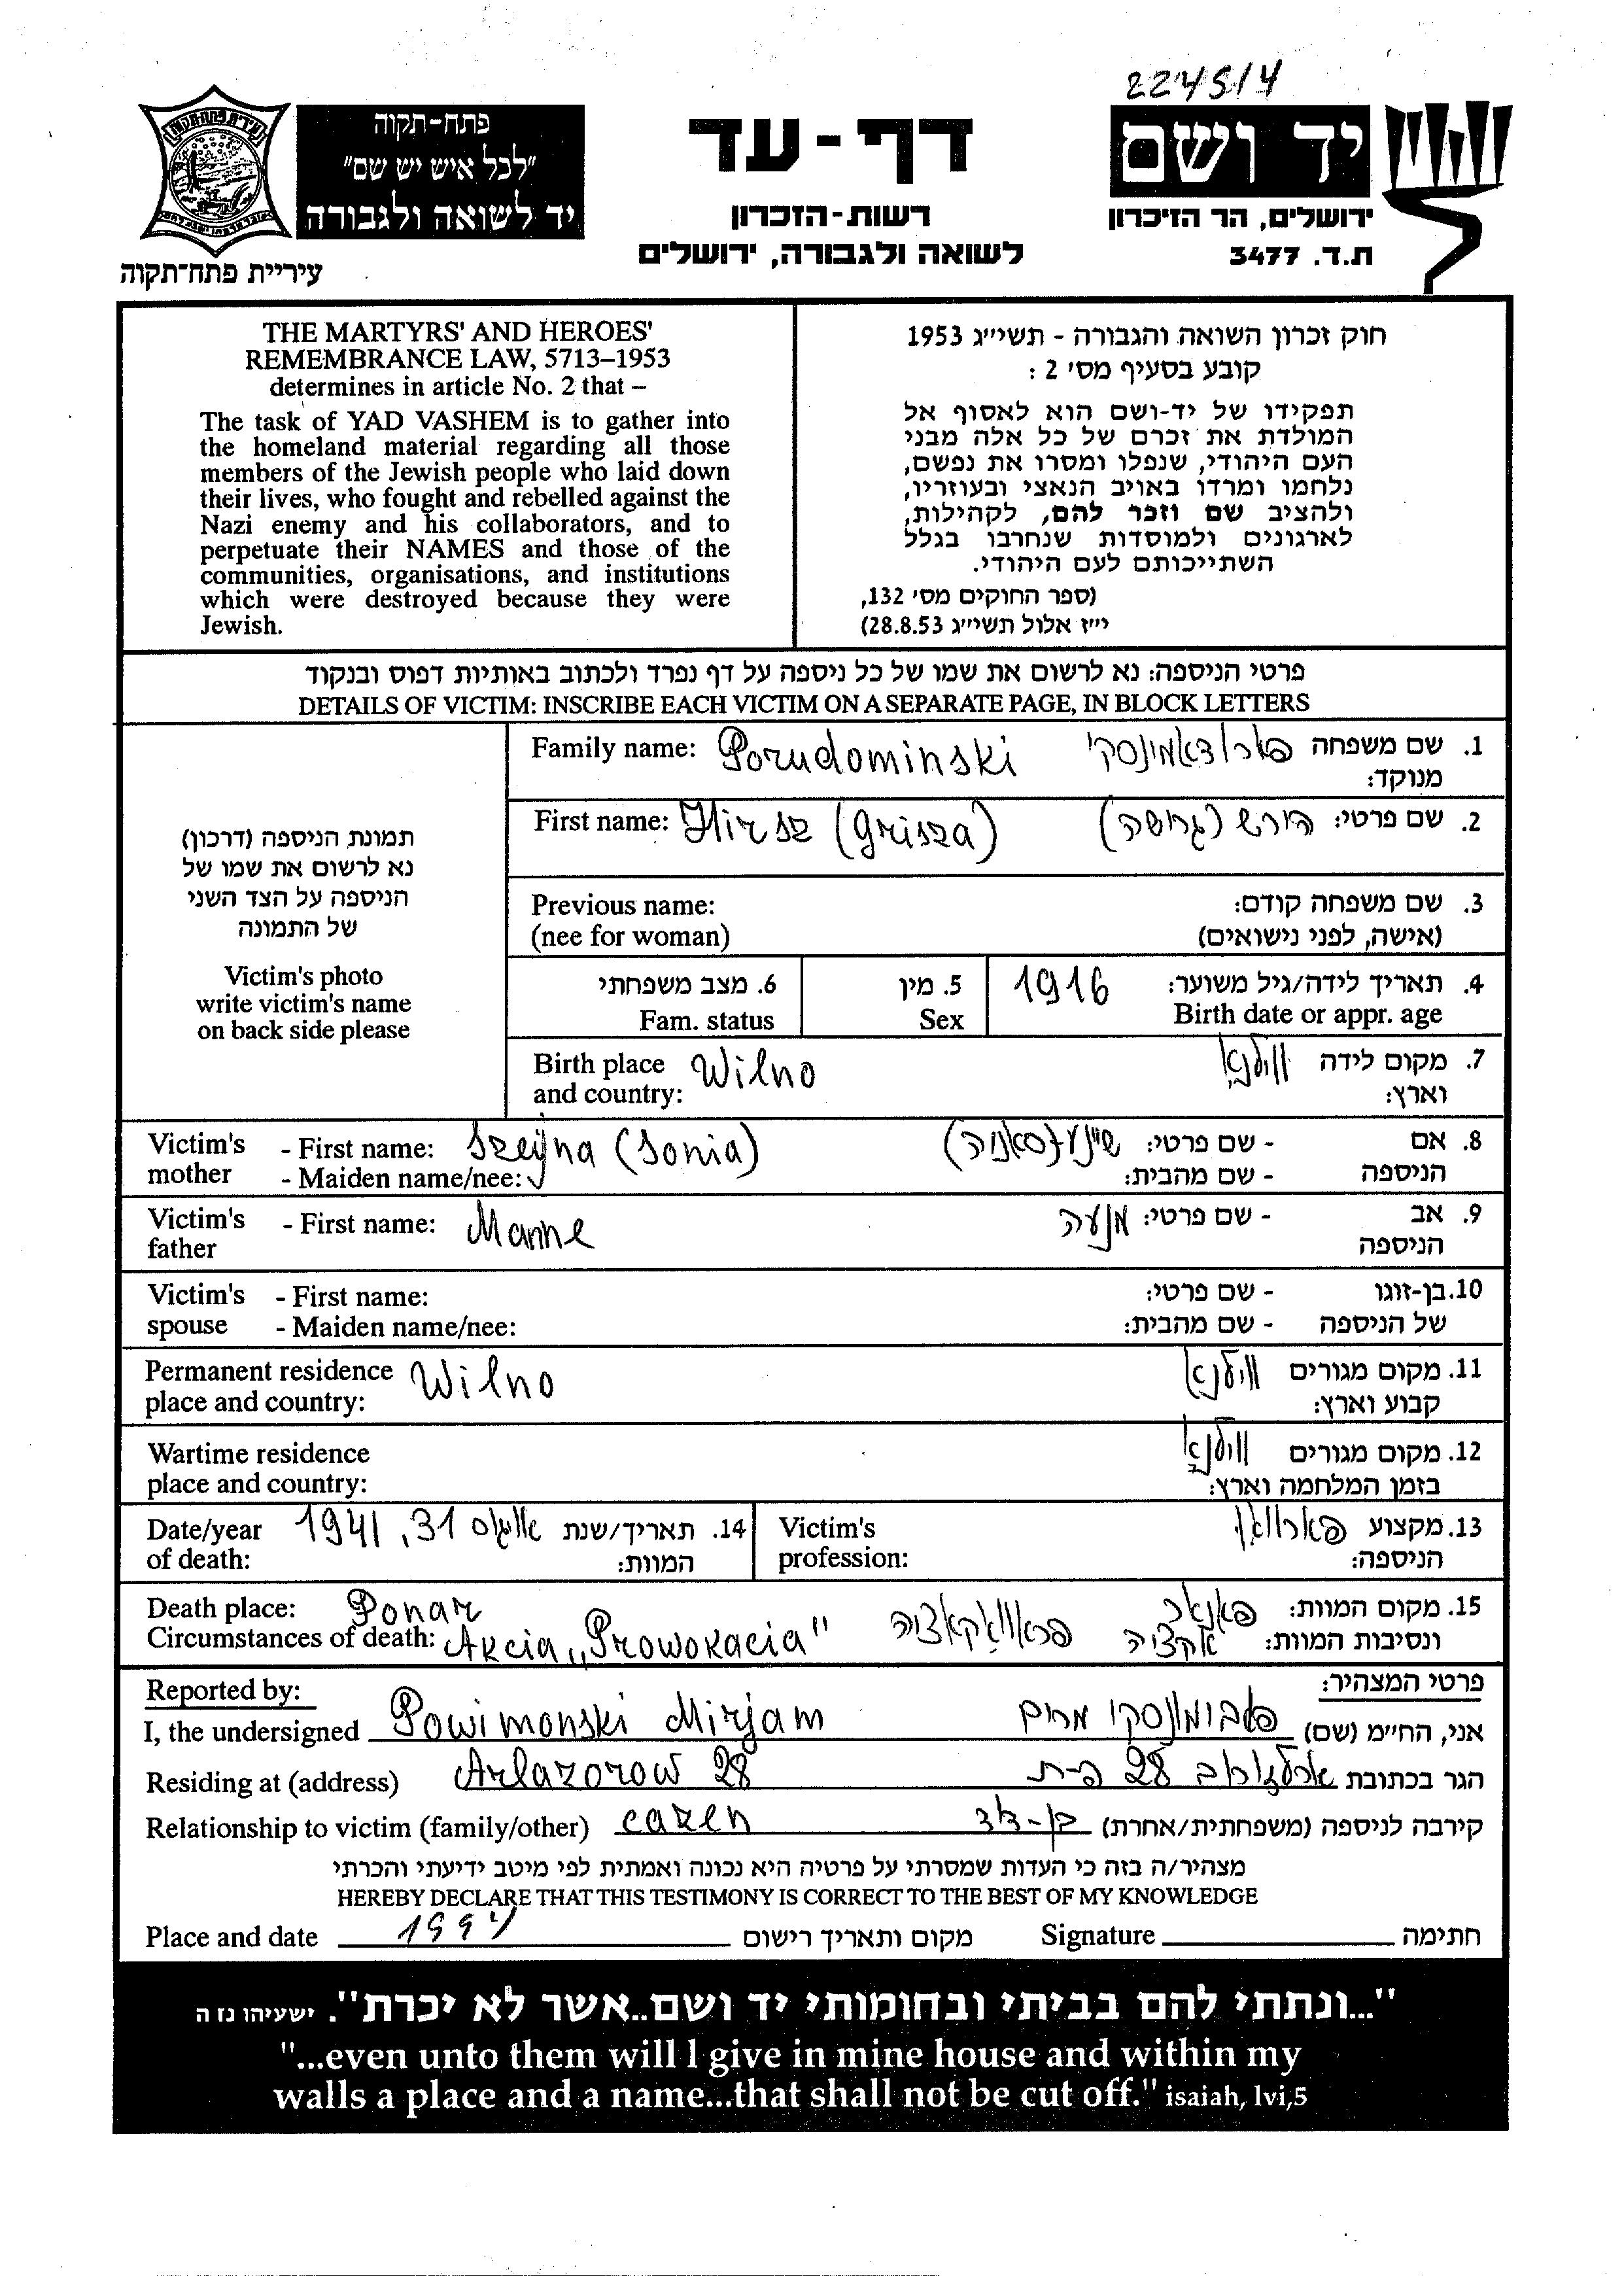 224514
פתח-תקוה
"לכל איש יש שם"
יד לשואה ולגבורה
עיריית פתח-תקוה
דף-עד
רשות-הזכרון
לשואה ולגבורה, ירושלים
יד ושם
ירושלים, הר הזיכרון
ת.ד. 3477
THE MARTYRS' AND HEROES'
REMEMBRANCE LAW, 5713–1953
determines in article No. 2 that –
The task of YAD VASHEM is to gather into
the homeland material regarding all those
members of the Jewish people who laid down
their lives, who fought and rebelled against the
Nazi enemy and his collaborators, and to
perpetuate their NAMES and those of the
communities, organisations, and institutions
which were destroyed because they were
Jewish.
חוק זכרון השואה והגבורה - תשי״ג 1953
קובע בסעיף מס׳ 2 :
תפקידו של יד-ושם הוא לאסוף אל
המולדת את זכרם של כל אלה מבני
העם היהודי, שנפלו ומסרו את נפשם,
נלחמו ומרדו באויב הנאצי ובעוזריו,
ולהציב שם וזכר להם, לקהילות,
לארגונים ולמוסדות שנחרבו בגלל
השתייכותם לעם היהודי.
(ספר החוקים מס׳ 132,
י״ז אלול תשי״ג 28.8.53)
פרטי הניספה: נא לרשום את שמו של כל ניספה על דף נפרד ולכתוב באותיות דפוס ובנקוד
DETAILS OF VICTIM: INSCRIBE EACH VICTIM ON A SEPARATE PAGE, IN BLOCK LETTERS
תמונת הניספה (דרכון)
נא לרשום את שמו של
הניספה על הצד השני
של התמונה
Victim's photo
write victim's name
on back side please
Family name: Porudominski פארודאמינסקי 1. שם משפחה
מנוקד:
First name: Hirsz (Grisza) הירש (גרישה) 2. שם פרטי:
Previous name: 3. שם משפחה קודם:
(nee for woman) (אישה, לפני נישואים)
6. מצב משפחתי 5. מין 1916 4. תאריך לידה/גיל משוער:
Fam. status Sex Birth date or appr. age
Birth place Wilno ווילנא 7. מקום לידה
and country: וארץ:
Victim's - First name: Szejna (Sonia) שיינע (סאניה) - שם פרטי: 8. אם
mother - Maiden name/nee: - שם מהבית: הניספה
Victim's - First name: Manne מנעה - שם פרטי: 9. אב
father הניספה
Victim's - First name: - שם פרטי: 10. בן-זוגו
spouse - Maiden name/nee: - שם מהבית: של הניספה
Permanent residence Wilno ווילנא 11. מקום מגורים
place and country: קבוע וארץ:
Wartime residence ווילנא 12. מקום מגורים
place and country: בזמן המלחמה וארץ:
Date/year 1941, 31 אויגוס 14. תאריך/שנת Victim's 13. מקצוע
of death: המוות: profession: הניספה:
Death place: Ponar פאנאר 15. מקום המוות:
Circumstances of death: Akcia „Prowokacia" פראוואקאציה אקציה ונסיבות המוות:
Reported by: פרטי המצהיר:
I, the undersigned Powimonski Mirjam פובימונסקי מרים אני, החי״מ (שם)
Residing at (address) Arlazorow 28 ארלוזורוב 28 פ-ת הגר בכתובת
Relationship to victim (family/other) cazen בן-דוד קירבה לניספה (משפחתית/אחרת)
מצהיר/ה בזה כי העדות שמסרתי על פרטיה היא נכונה ואמתית לפי מיטב ידיעתי והכרתי
HEREBY DECLARE THAT THIS TESTIMONY IS CORRECT TO THE BEST OF MY KNOWLEDGE
Place and date 1994 מקום ותאריך רישום Signature חתימה
"...ונתתי להם בביתי ובחומותי יד ושם..אשר לא יכרת". ישעיהו נז ה
"...even unto them will I give in mine house and within my
walls a place and a name...that shall not be cut off." isaiah, lvi,5